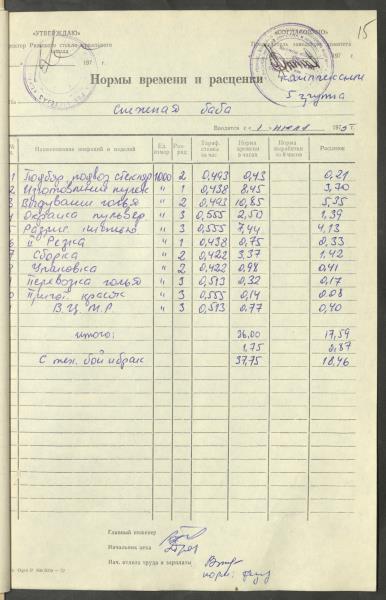 15
«УТВЕРЖДАЮ»
«СОГЛАСОВАНО»
197 г.
197
комплексный
5 группа
Нормы времени и расценки
На снежная баба
Вводятся с «1 июля 1975 г.
Наименование операций и изделий
Ед. измер
Раз-ряд
Тариф. ставка за час
Норма времени в часах
Норма выработки за 8 часов
Расценок
1 Подбор, подвоз стеклотр 1000 2 0,493 0,43 0,21
2 Изготовление пулек " 1 0,438 8,45 3,70
3 Выдувание голья " 2 0,493 10,85 5,35
4 Окраска пульвер " 3 0,555 2,50 1,39
5 Разпис. кистью " 3 0,555 7,44 4,13
6 " Резка " 1 0,438 0,75 0,33
7 Сборка " 2 0,422 3,37 1,42
8 Упаковка " 2 0,422 0,98 0,41
9 Перевозка голья " 3 0,513 0,32 0,17
0 Пригот. красок " 3 0,555 0,14 0.08
В.Ц.М.Р. " 3 0,513 0.77 0,40
итого: 36,00 17,59
1,75 0,87
С тех. бой и брак 37,75 18,46
Главный инженер
Начальник цеха
Нач. отдела труда и зарплаты